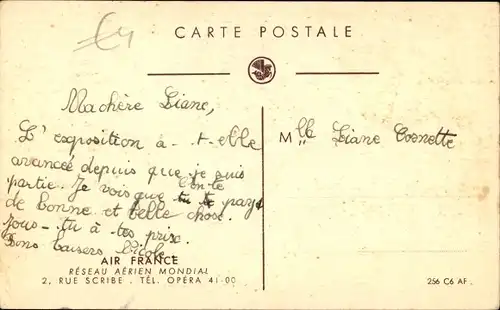 CARTE POSTALE
Ma chère Liane,
L'exposition a-t-elle
avancée depuis que je suis
partie. Je vois que l'on te
tu te paye
de bonne et belle chose.
Joue-tu à tes prix.
Bons baisers Nicole
Mlle Liane Cornette
AIR FRANCE
RÉSEAU AÉRIEN MONDIAL
2, RUE SCRIBE. TÉL. OPÉRA 41-00
256 C6 AF.